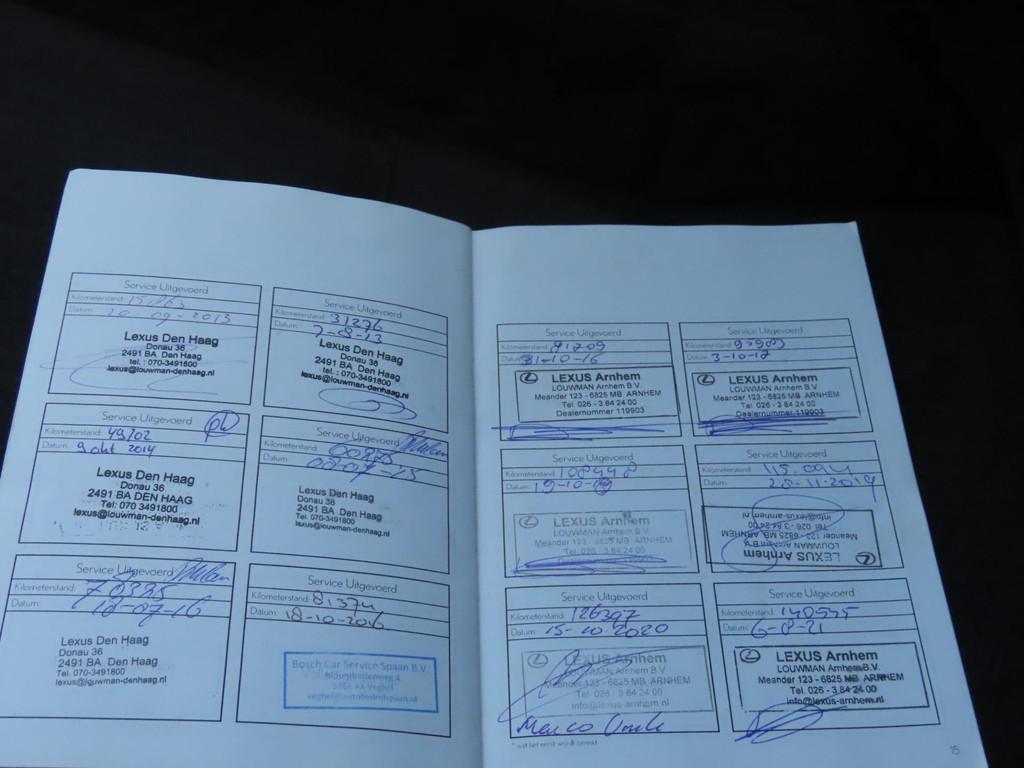 Service Uitgevoerd
Kilometerstand:
Datum: 20-09-2013
Lexus Den Haag
Donau 36
2491 BA Den Haag
tel. : 070-3491800
lexus@louwman-denhaag.nl
Service Uitgevoerd
Kilometerstand: 31276
Datum: 7-8-13
Lexus Den Haag
Donau 36
2491 BA Den Haag
tel. : 070-3491800
lexus@louwman-denhaag.nl
Service Uitgevoerd
Kilometerstand: 49102
Datum: 9 okt 2014
Lexus Den Haag
Donau 36
2491 BA DEN HAAG
Tel: 070 3491800
lexus@louwman-denhaag.nl
Service Uitgevoerd
Kilometerstand:
Datum: 08-07-15
Lexus Den Haag
Donau 36
2491 BA Den Haag
Tel. 070-3491800
lexus@louwman-denhaag.nl
Service Uitgevoerd
Kilometerstand: 70325
Datum: 18-07-16
Lexus Den Haag
Donau 36
2491 BA Den Haag
Tel. 070-3491800
lexus@louwman-denhaag.nl
Service Uitgevoerd
Kilometerstand: 81374
Datum: 18-10-2016
Bosch Car Service Spaan B.V.
Service Uitgevoerd
Kilometerstand: 81709
Datum: 31-10-16
LEXUS Arnhem
LOUWMAN Arnhem B.V.
Meander 123 - 6825 MB ARNHEM
Tel. 026 - 3 64 24 00
Dealernummer 119903
Service Uitgevoerd
Kilometerstand:
Datum: 3-10-17
LEXUS Arnhem
LOUWMAN Arnhem B.V.
Meander 123 - 6825 MB ARNHEM
Tel. 026 - 3 64 24 00
Dealernummer 119903
Service Uitgevoerd
Kilometerstand: 108448
Datum: 19-10-
LEXUS Arnhem
LOUWMAN Arnhem B.V.
Meander 123 - 6825 MB ARNHEM
Tel. 026 - 3 64 24 00
Service Uitgevoerd
Kilometerstand: 115.094
Datum: 28-11-2019
LEXUS Arnhem
LOUWMAN Arnhem B.V.
Meander 123 - 6825 MB ARNHEM
Tel. 026 - 3 64 24 00
info@lexus-arnhem.nl
Service Uitgevoerd
Kilometerstand: 126397
Datum: 15-10-2020
LEXUS Arnhem
LOUWMAN Arnhem B.V.
Meander 123 - 6825 MB ARNHEM
Tel. 026 - 3 64 24 00
info@lexus-arnhem.nl
Service Uitgevoerd
Kilometerstand: 140545
Datum: 6-8-21
LEXUS Arnhem
LOUWMAN Arnhem B.V.
Meander 123 - 6825 MB ARNHEM
Tel. 026 - 3 64 24 00
info@lexus-arnhem.nl
* wat het eerst wordt bereikt
15